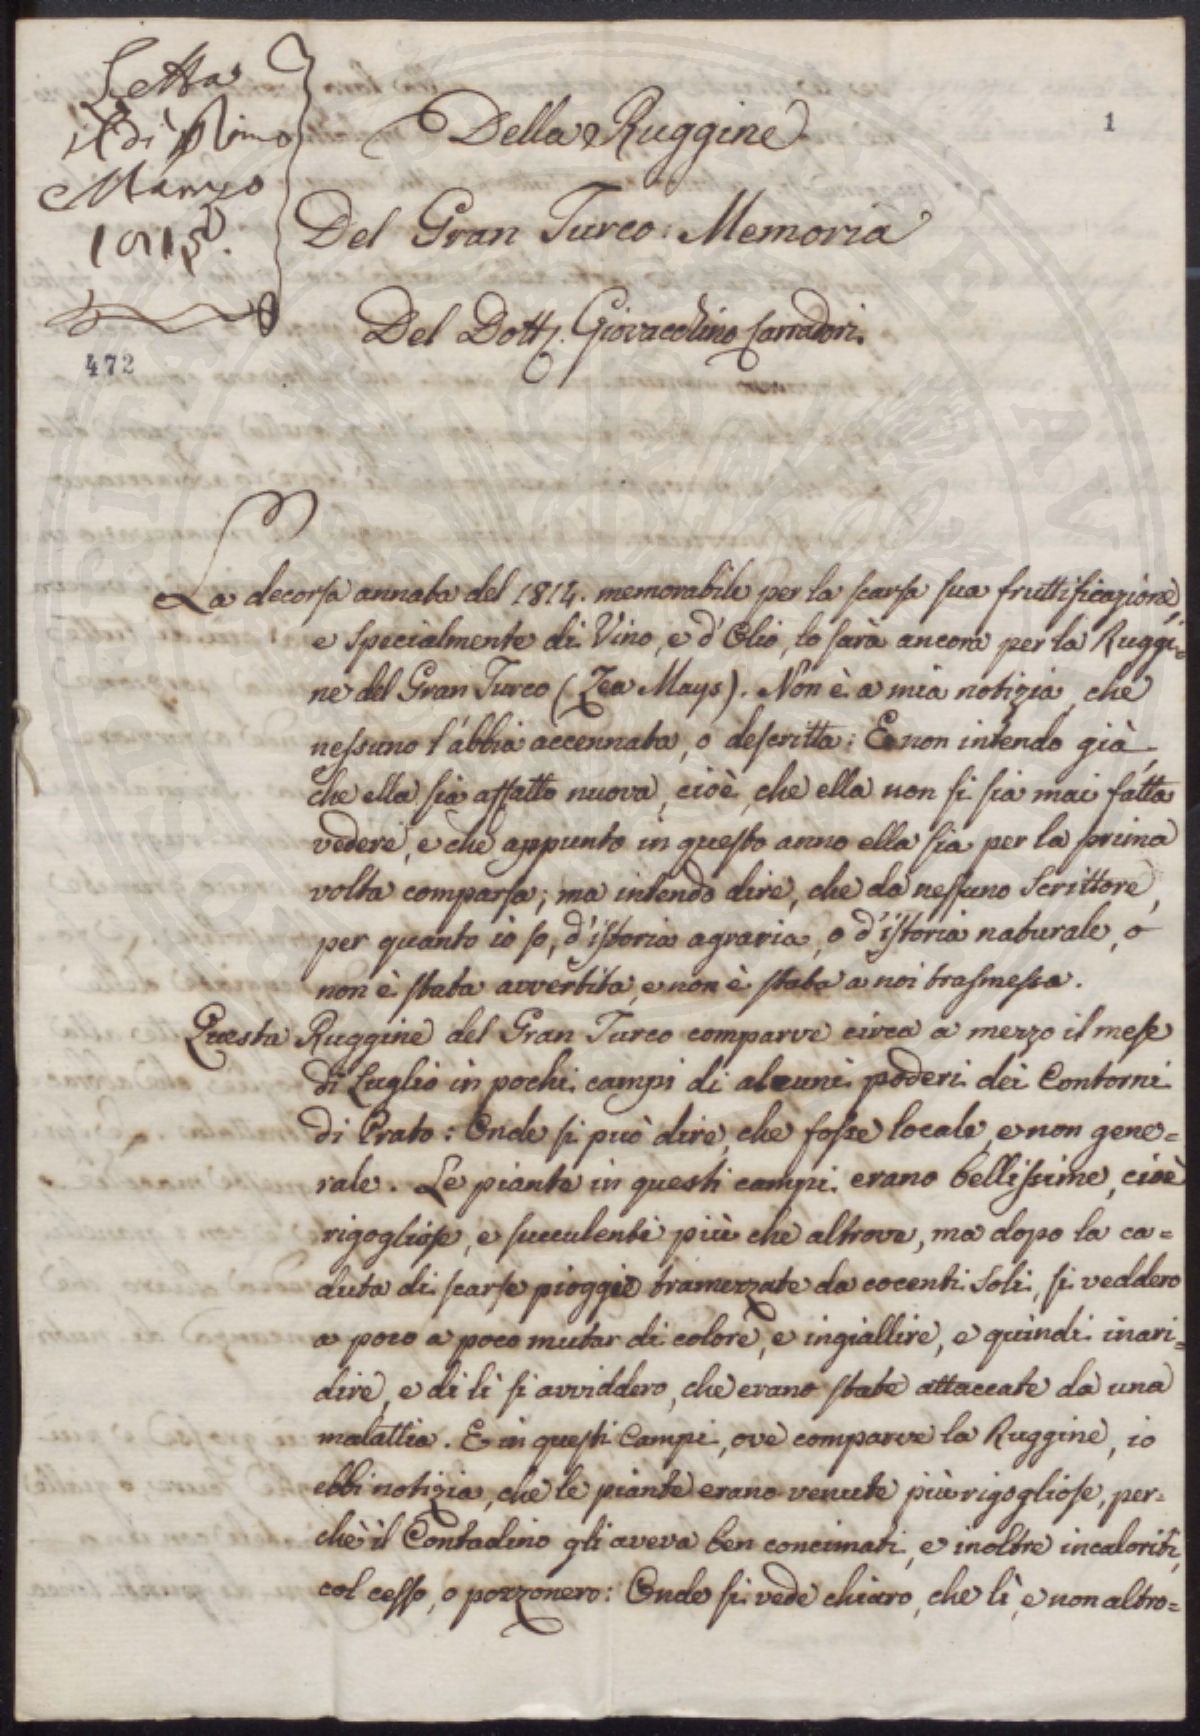 Letta
il dì primo
Marzo
1815.
472
1
Della Ruggine
Del Gran Turco: Memoria
Del Dott. Giovacchino Carradori.
La decorsa annata del 1814. memorabile per la scarsa sua fruttificazione,
e specialmente di Vino, e d'Olio, lo sarà ancora per la Ruggi=
ne del Gran Turco (Zea Mays). Non è a mia notizia, che
nessuno l'abbia accennata, o descritta: E non intendo già,
che ella sia affatto nuova, cioè, che ella non si sia mai fatta
vedere, e che appunto in questo anno ella sia per la prima
volta comparsa; ma intendo dire, che da nessuno Scrittore,
per quanto io so, d'istoria agraria, o d'istoria naturale, o
non è stata avvertita, e non è stata a noi trasmessa.
Questa Ruggine del Gran Turco comparve circa a mezzo il mese
di Luglio in pochi campi di alcuni poderi dei Contorni
di Prato: Onde si può dire, che fosse locale, e non gene=
rale. Le piante in questi campi erano bellissime, cioè
rigogliose, e succulenti più che altrove, ma dopo la ca=
duta di scarse pioggie tramezzate da cocenti Soli, si veddero
a poco a poco mutar di colore, e ingiallire, e quindi inari=
dire, e di lì si avviddero, che erano state attaccate da una
malattia. E in questi Campi, ove comparve la Ruggine, io
ebbi notizia, che le piante erano venute più rigogliose, per=
chè il Contadino gli aveva ben concimati, e inoltre incaloriti,
col cesso, o pozzonero: Onde si vede chiaro, che lì, e non altro=